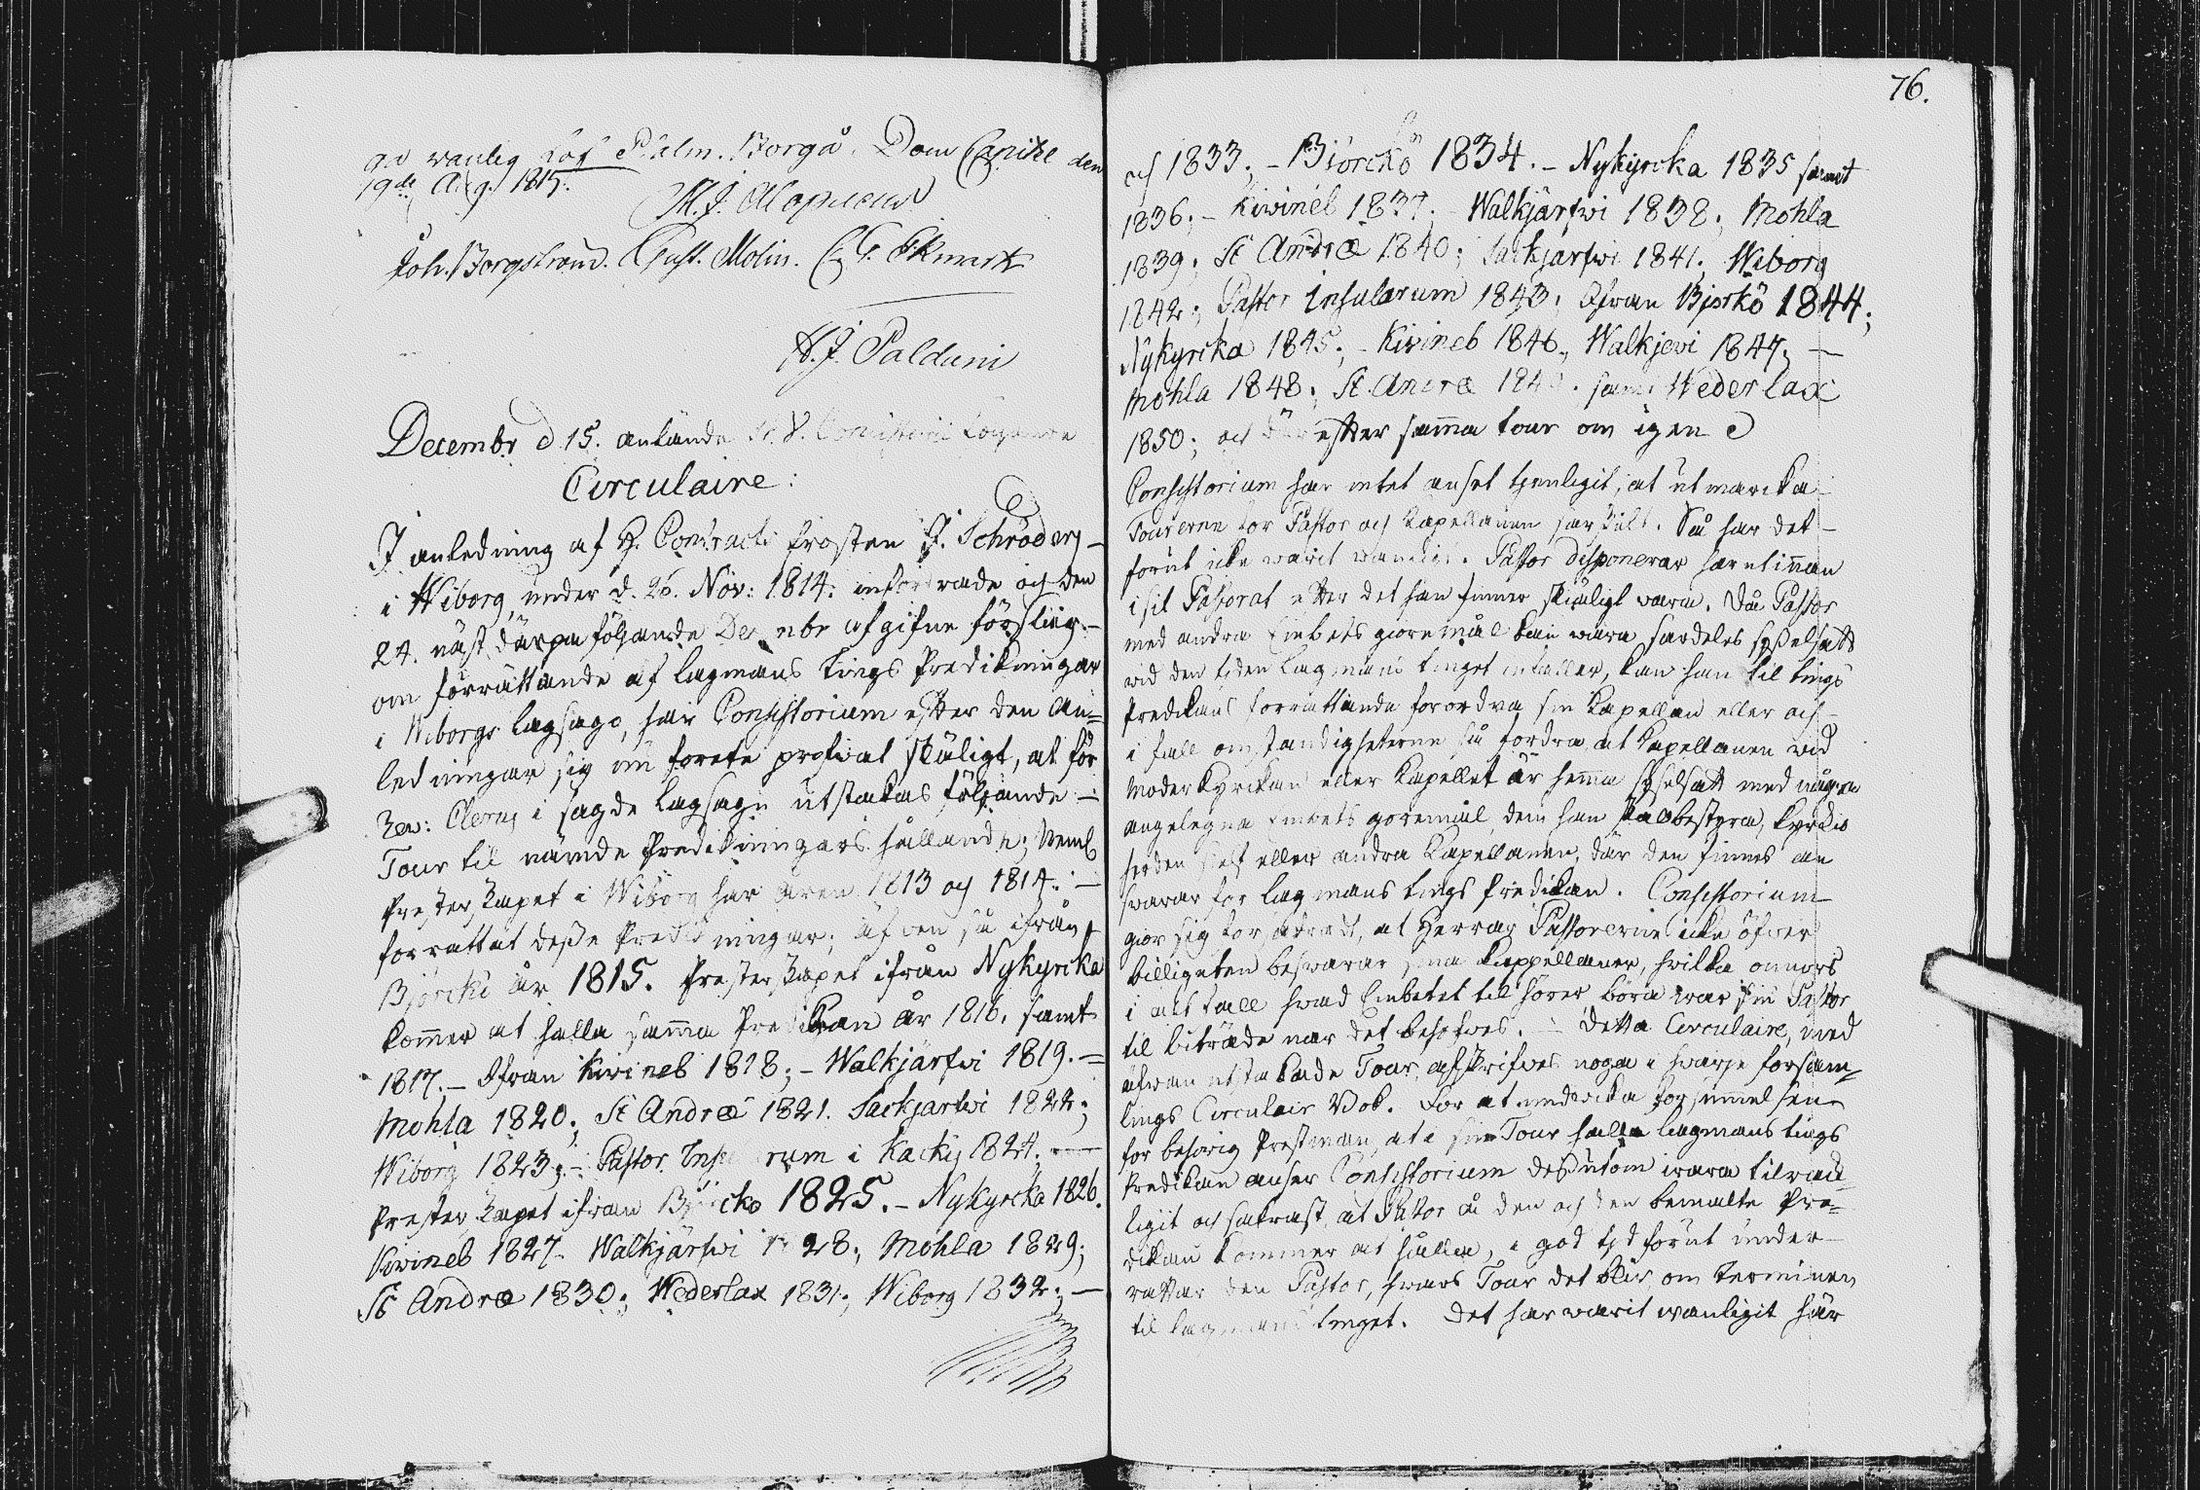 wanlig Lof Psalm. Borgå Dom Capitel den
19de Aug. 1815.
M. J. Alopaeus
Joh. Borgström. Gust. Molin. C. G. Ekmark
A. J. Paldani
Decembr d 15. anlände V. Consistorii följande
Circulaire:
I anledning af H. Contracts Prosten J. Schröders
i Wiborg, under d. 26. Nov: 1814. infordrade och den
24. näst därpå följande Decembr afgifne förslag
om förrättande af Lagmans Tings Predikningar
i Wiborgs Lagsago, har Consistorium efter den an=
ledningar sig nu forete pröfvat skäligt, at för
Rev: Clerus i sagde Lagsagu utstakas följande
Tour til nämde Predikningars hållande; Neml.
Presterskapet i Wiborg har åren 1813 och 1814.
förrättat desse Predikningar; äfven så ifrån
Björckö år 1815. Presterskapet ifrån Nykyrcka
kommer at hålla samma Predikan år 1816. samt
1817. – Ifrån Kivineb 1818; – Walkjärfwi 1819. =
Mohla 1820; St Andræ 1821. Säckjärfwi 1822;
Wiborg 1823; – Pastor Insularum i Kackis 1824.
Presterskapet ifrån Björcko 1825. – Nykyrcka 1826.
Kivineb 1827 – Walkjärfwi 1828; Mohla 1829;
St Andræ 1830; Wederlax 1831; Wiborg 1832; –
76.
och 1833; – Björckö 1834. – Nykyrcka 1835 samt
1836; – Kivineb 1837. – Walkjärfwi 1838; Mohla
1839; St Andræ 1840; Säckjärfwi 1841. Wiborg
1842; Pastor Insularum 1843; Ifrån Bjorkö 1844;
Nykyrcka 1845; – Kivineb 1846., Walkjerwi 1847; –
Mohla 1848; St. Andræ 1849. samt Wederlax
1850; och därefter samma tour om igen
Consistorium har intet anset tjenligit, at utmärcka
Tourerne för Pastor och Kapellanen särskilt. Så har det
förut icke warit wanligt. Pastor disponerar härutinnan
i sit Pastorat efter det han finner skäligt vara. Då Pastor
med andra Embets göremål kan wara särdeles sysselsatt
wid den tiden Lagmans tinget infaller, kan han til tings
Predikans förrättande förordra sin Kapellan eller och
i fall omständigheterne så fordra, at Kapellanen wid
Moderkyrckan eller Kapellet är hemma sysselsatt med några
angelegna Embets göremål, dem han ska bestyra, Kyrcko
herden sjelf eller andra Kapellanen, där den finnes an
svarar för Lagmans tings Predikan. Consistorium
gör sig försäkradt, at Herrar Pastorerne icke öfver
billigheten besvärar sina Kappellaner, hvilka annors
i alt fall hvad Embetet til hörer böra war sin Pastor
til biträde när det behöfves. – Detta Circulaire, med
äfvan utstakade Tour, afskrifves noga i hwarje försam=
lings Circulair Bok. För at undvicka försummelsen
för behörig Prestman, at i sin Tour hålla Lagmans tings
Predikan anser Consistorium dessutom wara tilråd=
ligit och säkrast, at Pastor å den ort den bemälte Pre=
dikan kommer at hållas, i god tid förut under
rättar den Pastor, hwars Tour det blir om terminen
til Lagmans tinget. Det har warit wanligit här